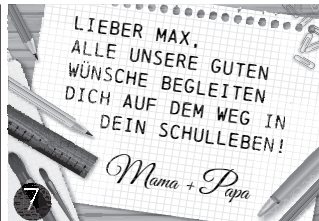 LIEBER MAX,
ALLE UNSERE GUTEN
WÜNSCHE BEGLEITEN
DICH AUF DEM WEG IN
DEIN SCHULLEBEN!
Mama + Papa
7